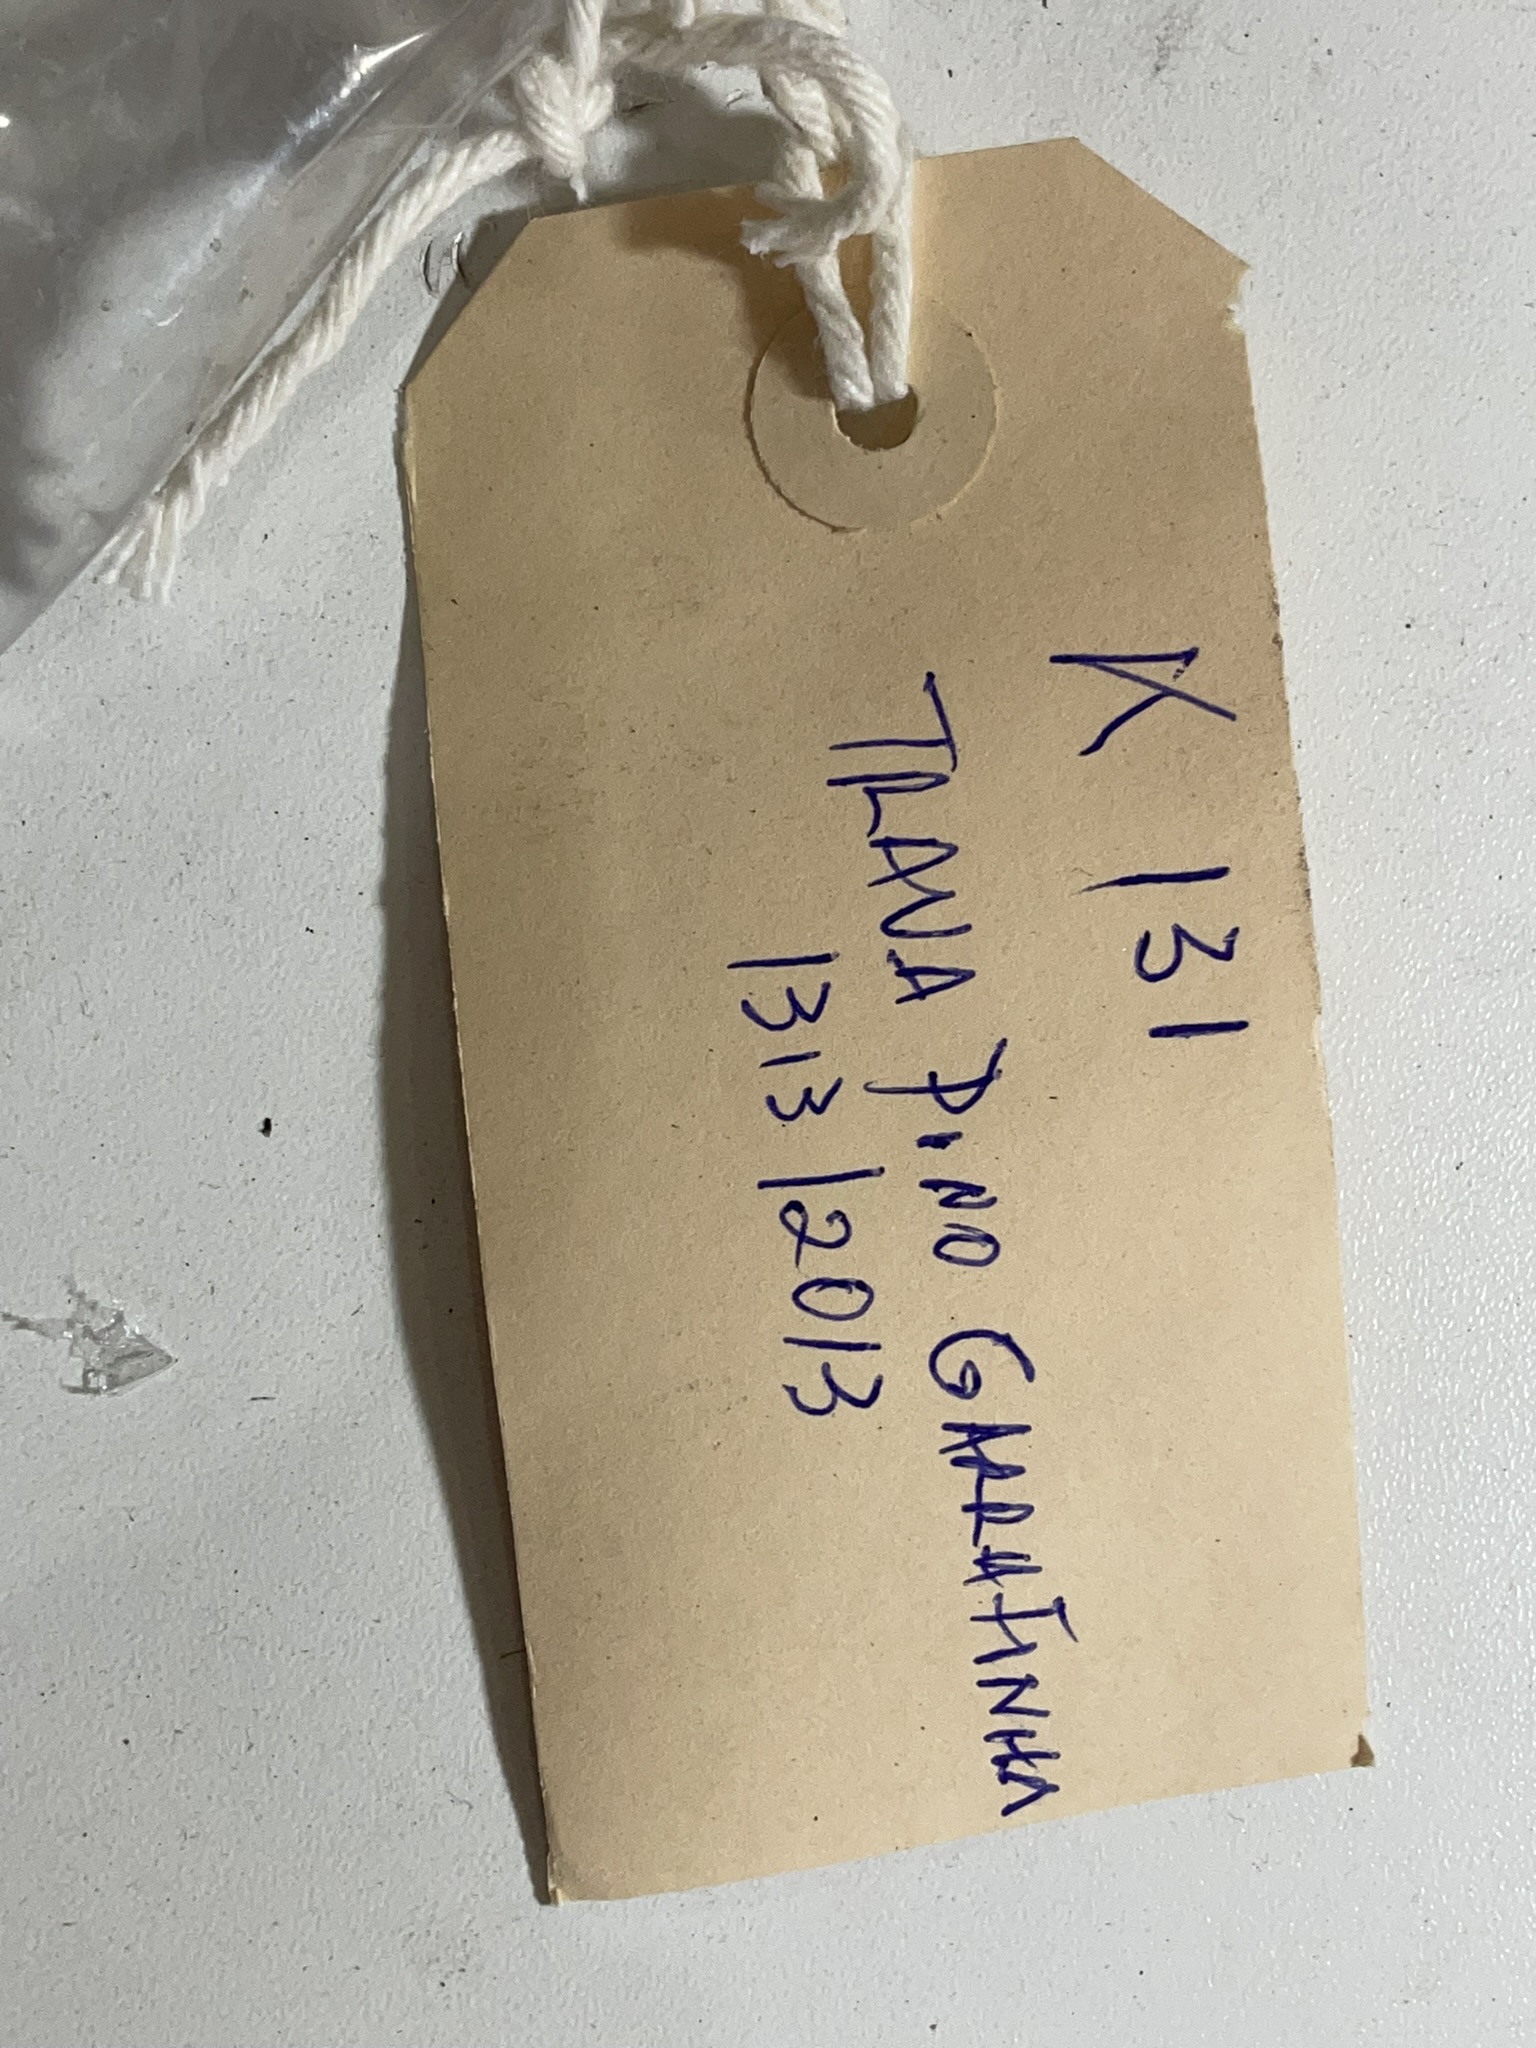 K 131
TRAVA PINO GARRAFINHA
1313/2013